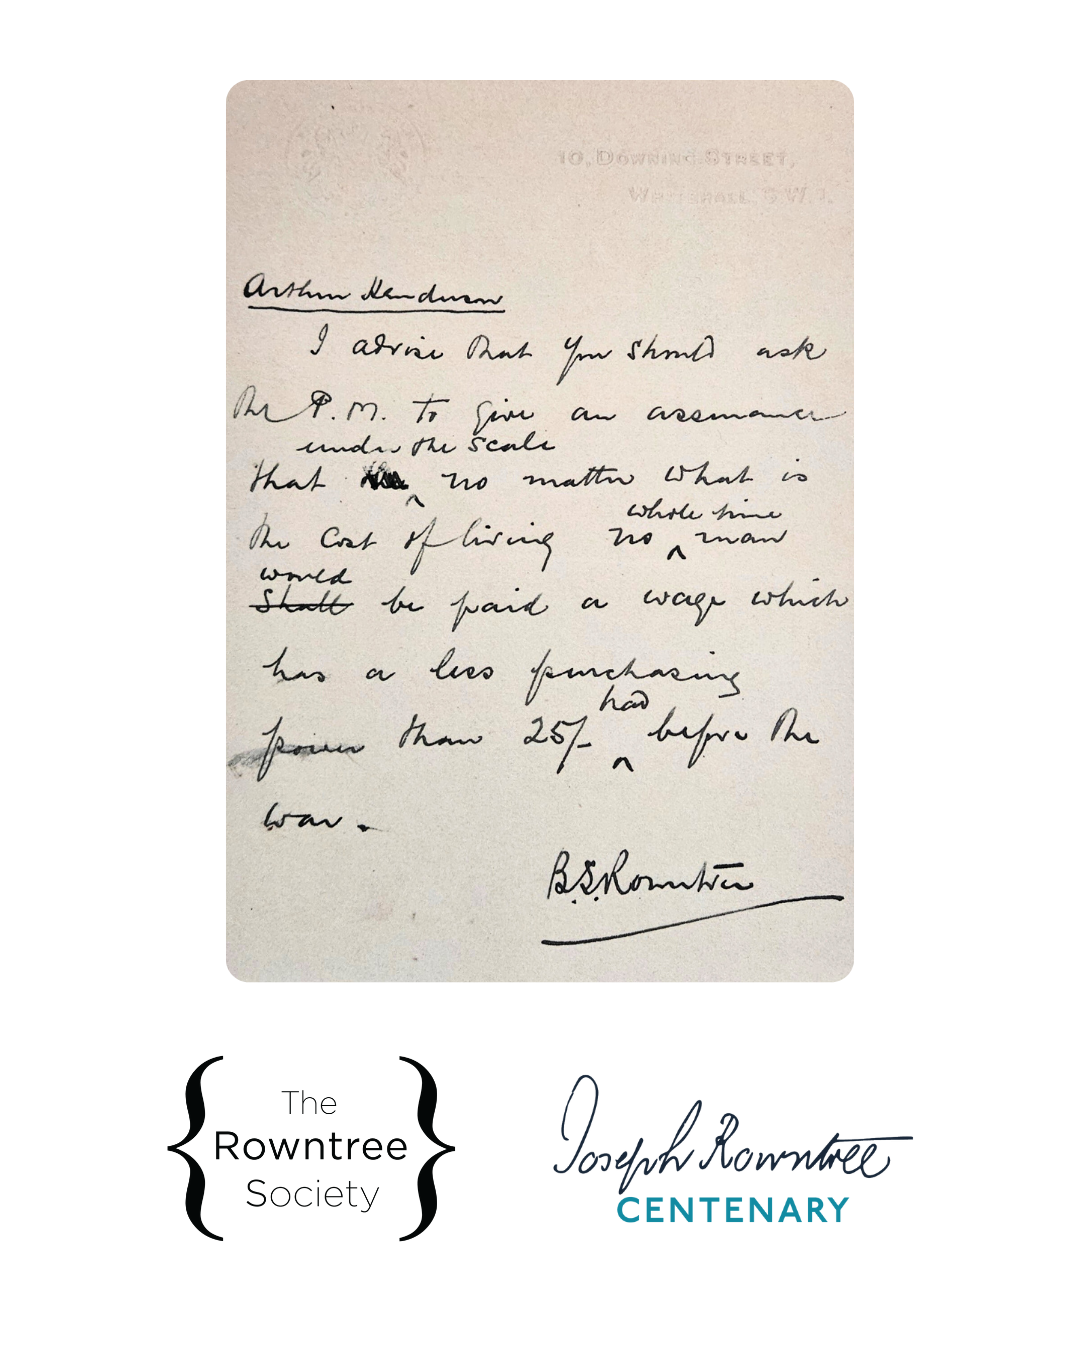 10, DOWNING STREET,
WHITEHALL S.W.1.
Arthur Henderson
I advise that you should ask
the P.M. to give an assurance
under the scale
that ^ no matter what is
whole time
the cost of living no ^ man
would
shall be paid a wage which
has a less purchasing
had
power than 25/- ^ before the
war.
B.S. Rowntree
The
Rowntree
Society
Joseph Rowntree
CENTENARY